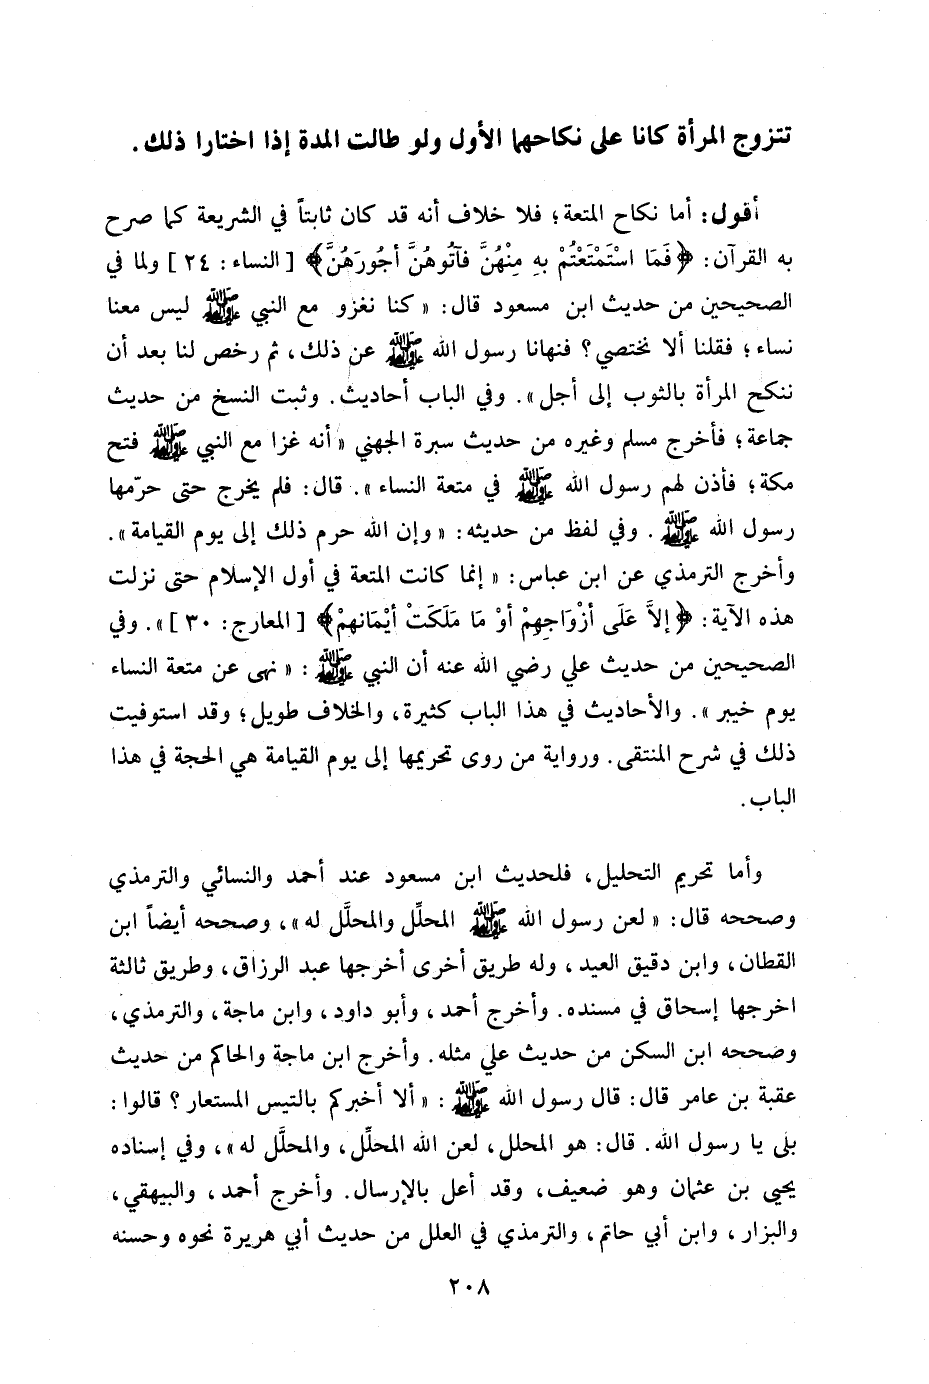 تتزوج المرأة كانا على نكاحهما الأول ولو طالت المدة إذا اختارا ذلك.
أقول: أما نكاح المتعة؛ فلا خلاف أنه قد كان ثابتاً في الشريعة كما صرح
به القرآن: ﴿فَمَا اسْتَمْتَعْتُمْ بِهِ مِنْهُنَّ فَآتُوهُنَّ أُجُورَهُنَّ﴾ [النساء: ٢٤] ولما في
الصحيحين من حديث ابن مسعود قال: «كنا نغزو مع النبي ﷺ ليس معنا
نساء؛ فقلنا ألا نختصي؟ فنهانا رسول الله ﷺ عن ذلك، ثم رخص لنا بعد أن
ننكح المرأة بالثوب إلى أجل». وفي الباب أحاديث. وثبت النسخ من حديث
جماعة؛ فأخرج مسلم وغيره من حديث سبرة الجهني «أنه غزا مع النبي ﷺ فتح
مكة؛ فأذن لهم رسول الله ﷺ في متعة النساء». قال: فلم يخرج حتى حرّمها
رسول الله ﷺ. وفي لفظ من حديثه: «وإن الله حرم ذلك إلى يوم القيامة».
وأخرج الترمذي عن ابن عباس: «إنما كانت المتعة في أول الإسلام حتى نزلت
هذه الآية: ﴿إلاَّ عَلَى أزْوَاجِهِمْ أوْ مَا مَلَكَتْ أيْمَانهِمْ﴾ [المعارج: ٣٠]». وفي
الصحيحين من حديث علي رضي الله عنه أن النبي ﷺ: «نهى عن متعة النساء
يوم خيبر». والأحاديث في هذا الباب كثيرة، والخلاف طويل؛ وقد استوفيت
ذلك في شرح المنتقى. ورواية من روى تحريمها إلى يوم القيامة هي الحجة في هذا
الباب.
وأما تحريم التحليل، فلحديث ابن مسعود عند أحمد والنسائي والترمذي
وصححه قال: «لعن رسول الله ﷺ المحلِّل والمحلَّل له»، وصححه أيضاً ابن
القطان، وابن دقيق العيد، وله طريق أخرى أخرجها عبد الرزاق، وطريق ثالثة
اخرجها إسحاق في مسنده. وأخرج أحمد، وأبو داود، وابن ماجة، والترمذي،
وصححه ابن السكن من حديث علي مثله. وأخرج ابن ماجة والحاكم من حديث
عقبة بن عامر قال: قال رسول الله ﷺ: «ألا أخبركم بالتيس المستعار؟ قالوا:
بلى يا رسول الله. قال: هو المحلل، لعن الله المحلِّل، والمحلَّل له»، وفي إسناده
يحيى بن عثمان وهو ضعيف، وقد أعل بالإرسال. وأخرج أحمد، والبيهقي،
والبزار، وابن أبي حاتم، والترمذي في العلل من حديث أبي هريرة نحوه وحسنه
٢٠٨